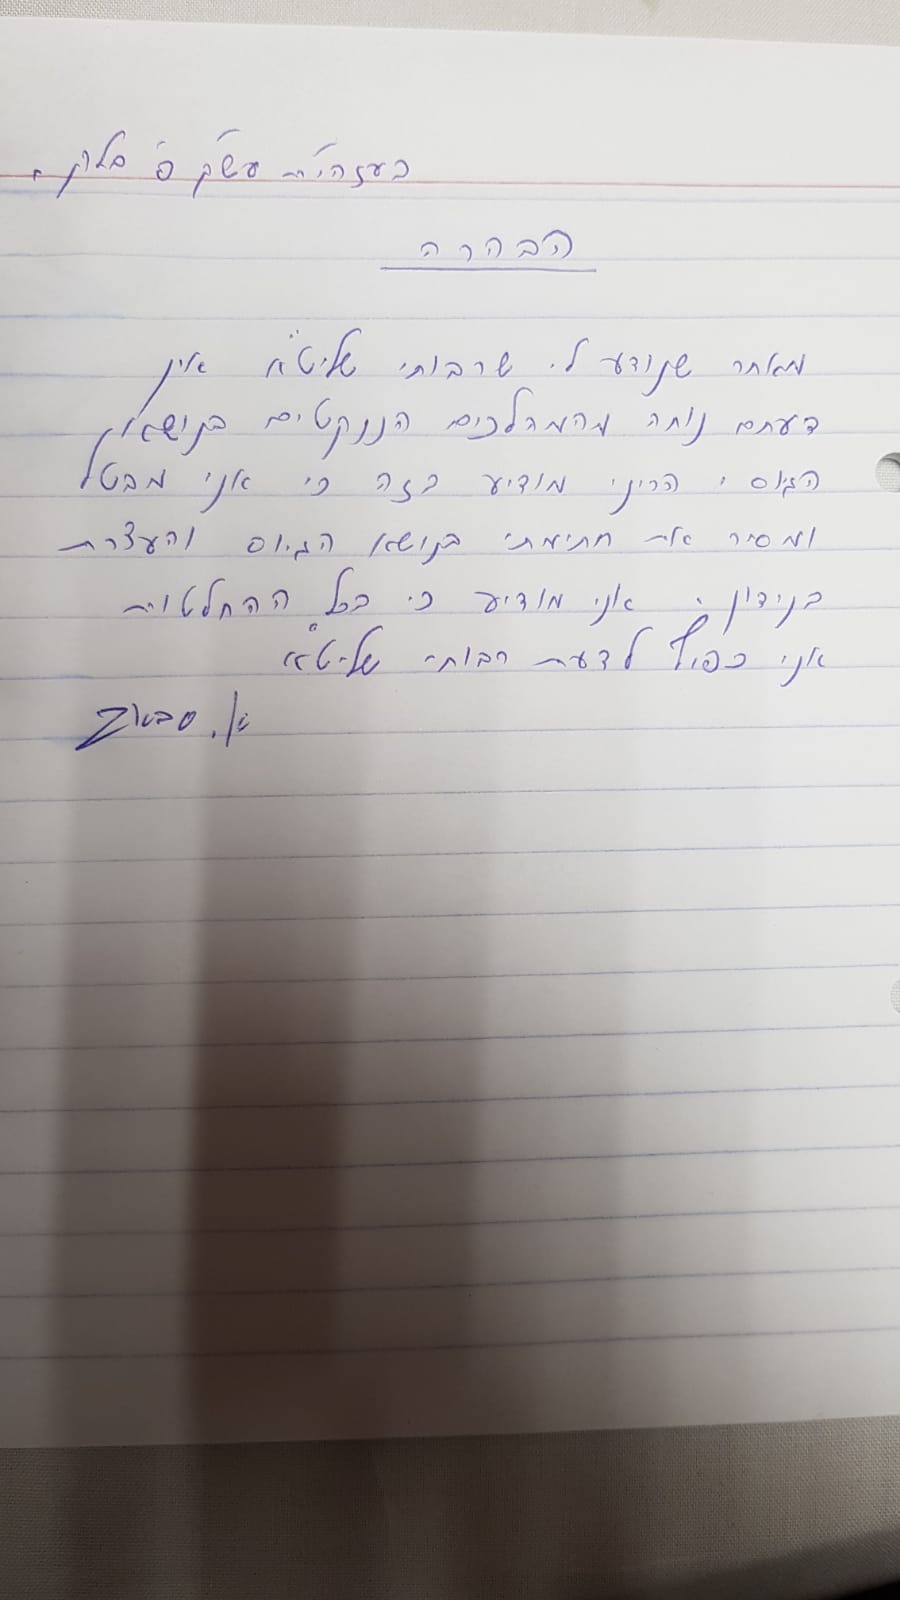 בעזהי"ת עש"ק פ' בלק.
הבהרה
מאחר שנודע לי שרבותי שליט"א אין
דעתם נוחה מהמהלכים הננקטים בנושא
הגיוס, הריני מודיע בזה כי אני מבטל
ומסיר את חתימתי בנושא הגיוס והעצרת
בנידון. אני מודיע כי בכל ההחלטות
אני כפוף לדעת רבותי שליט"א